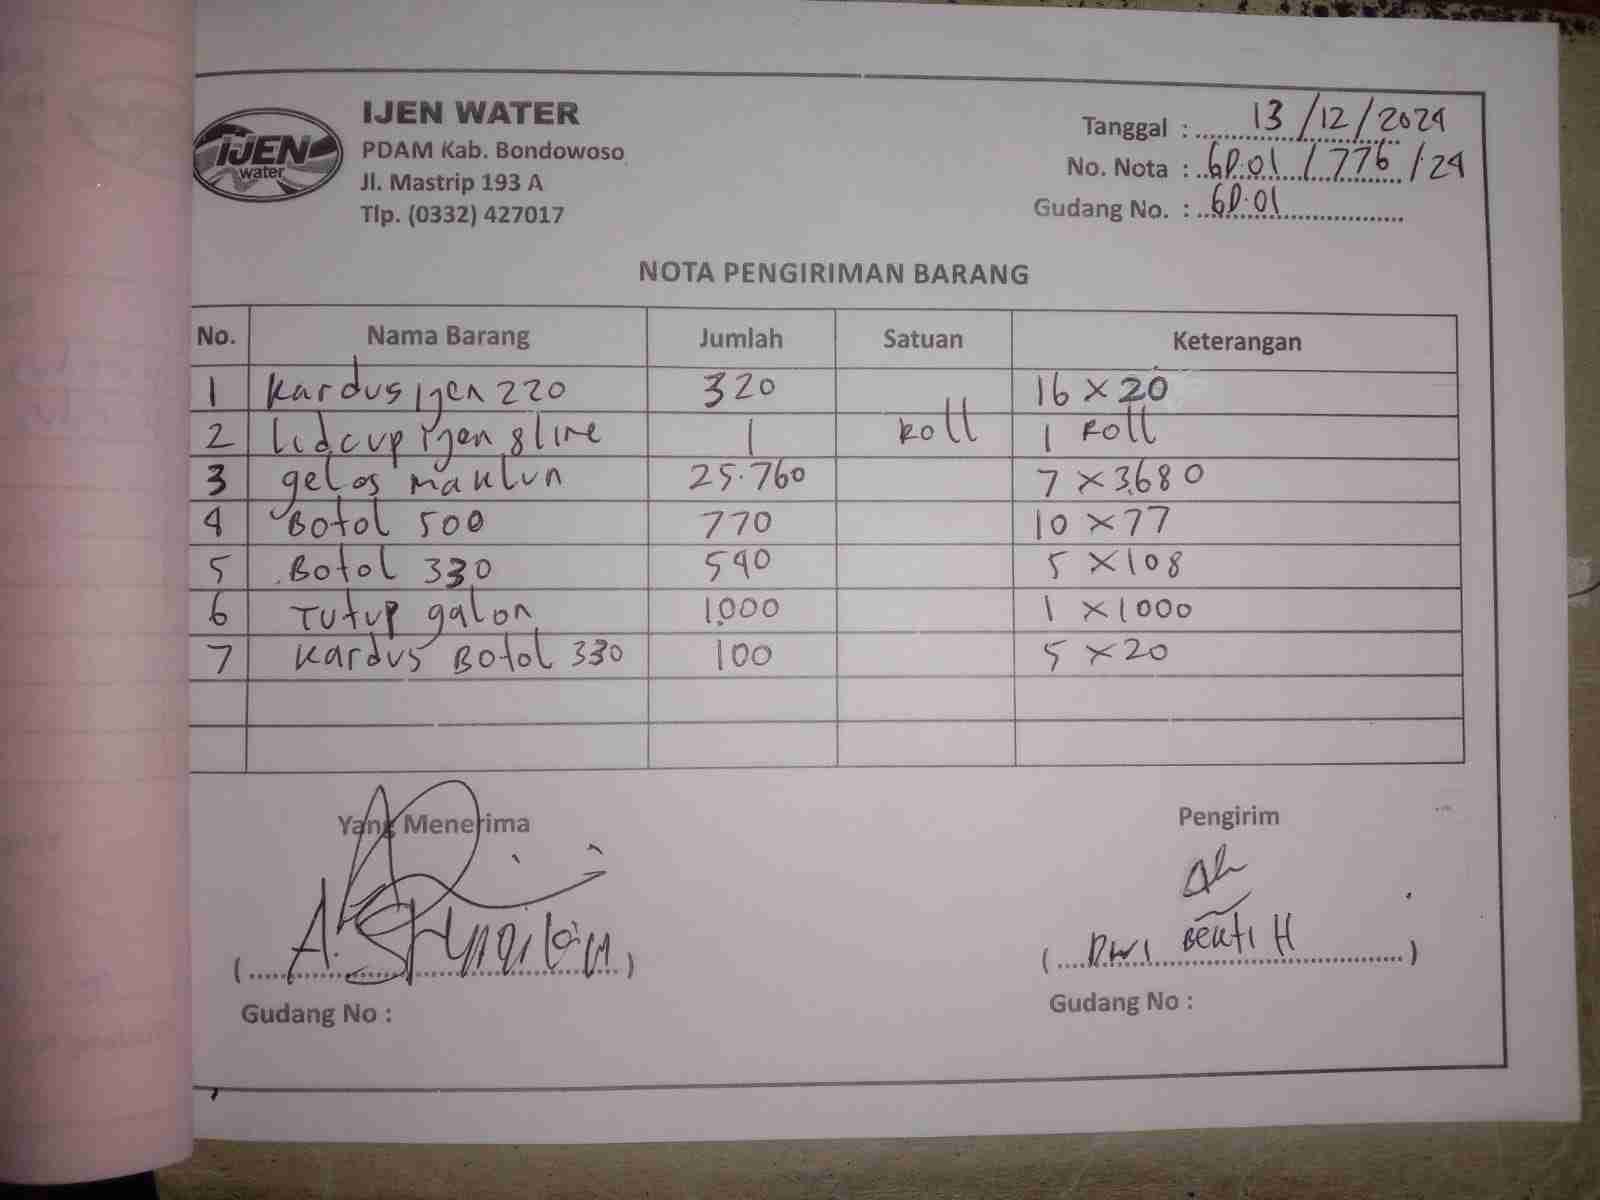 IJEN WATER
IJEN
water
PDAM Kab. Bondowoso
Jl. Mastrip 193 A
Tlp. (0332) 427017
Tanggal : 13/12/2024
No. Nota : GD.01/776/24
Gudang No. : GD.01
NOTA PENGIRIMAN BARANG
No. Nama Barang Jumlah Satuan Keterangan
1 Kardus ijen 220 320 16 x 20
2 Lidcup ijen 8 line 1 Roll 1 Roll
3 gelas maklun 25.760 7 x 3.680
4 Botol 500 770 10 x 77
5 Botol 330 540 5 x 108
6 Tutup galon 1.000 1 x 1000
7 Kardus Botol 330 100 5 x 20
Yang Menerima Pengirim
(A.) (Dwi Bekti H)
Gudang No : Gudang No :